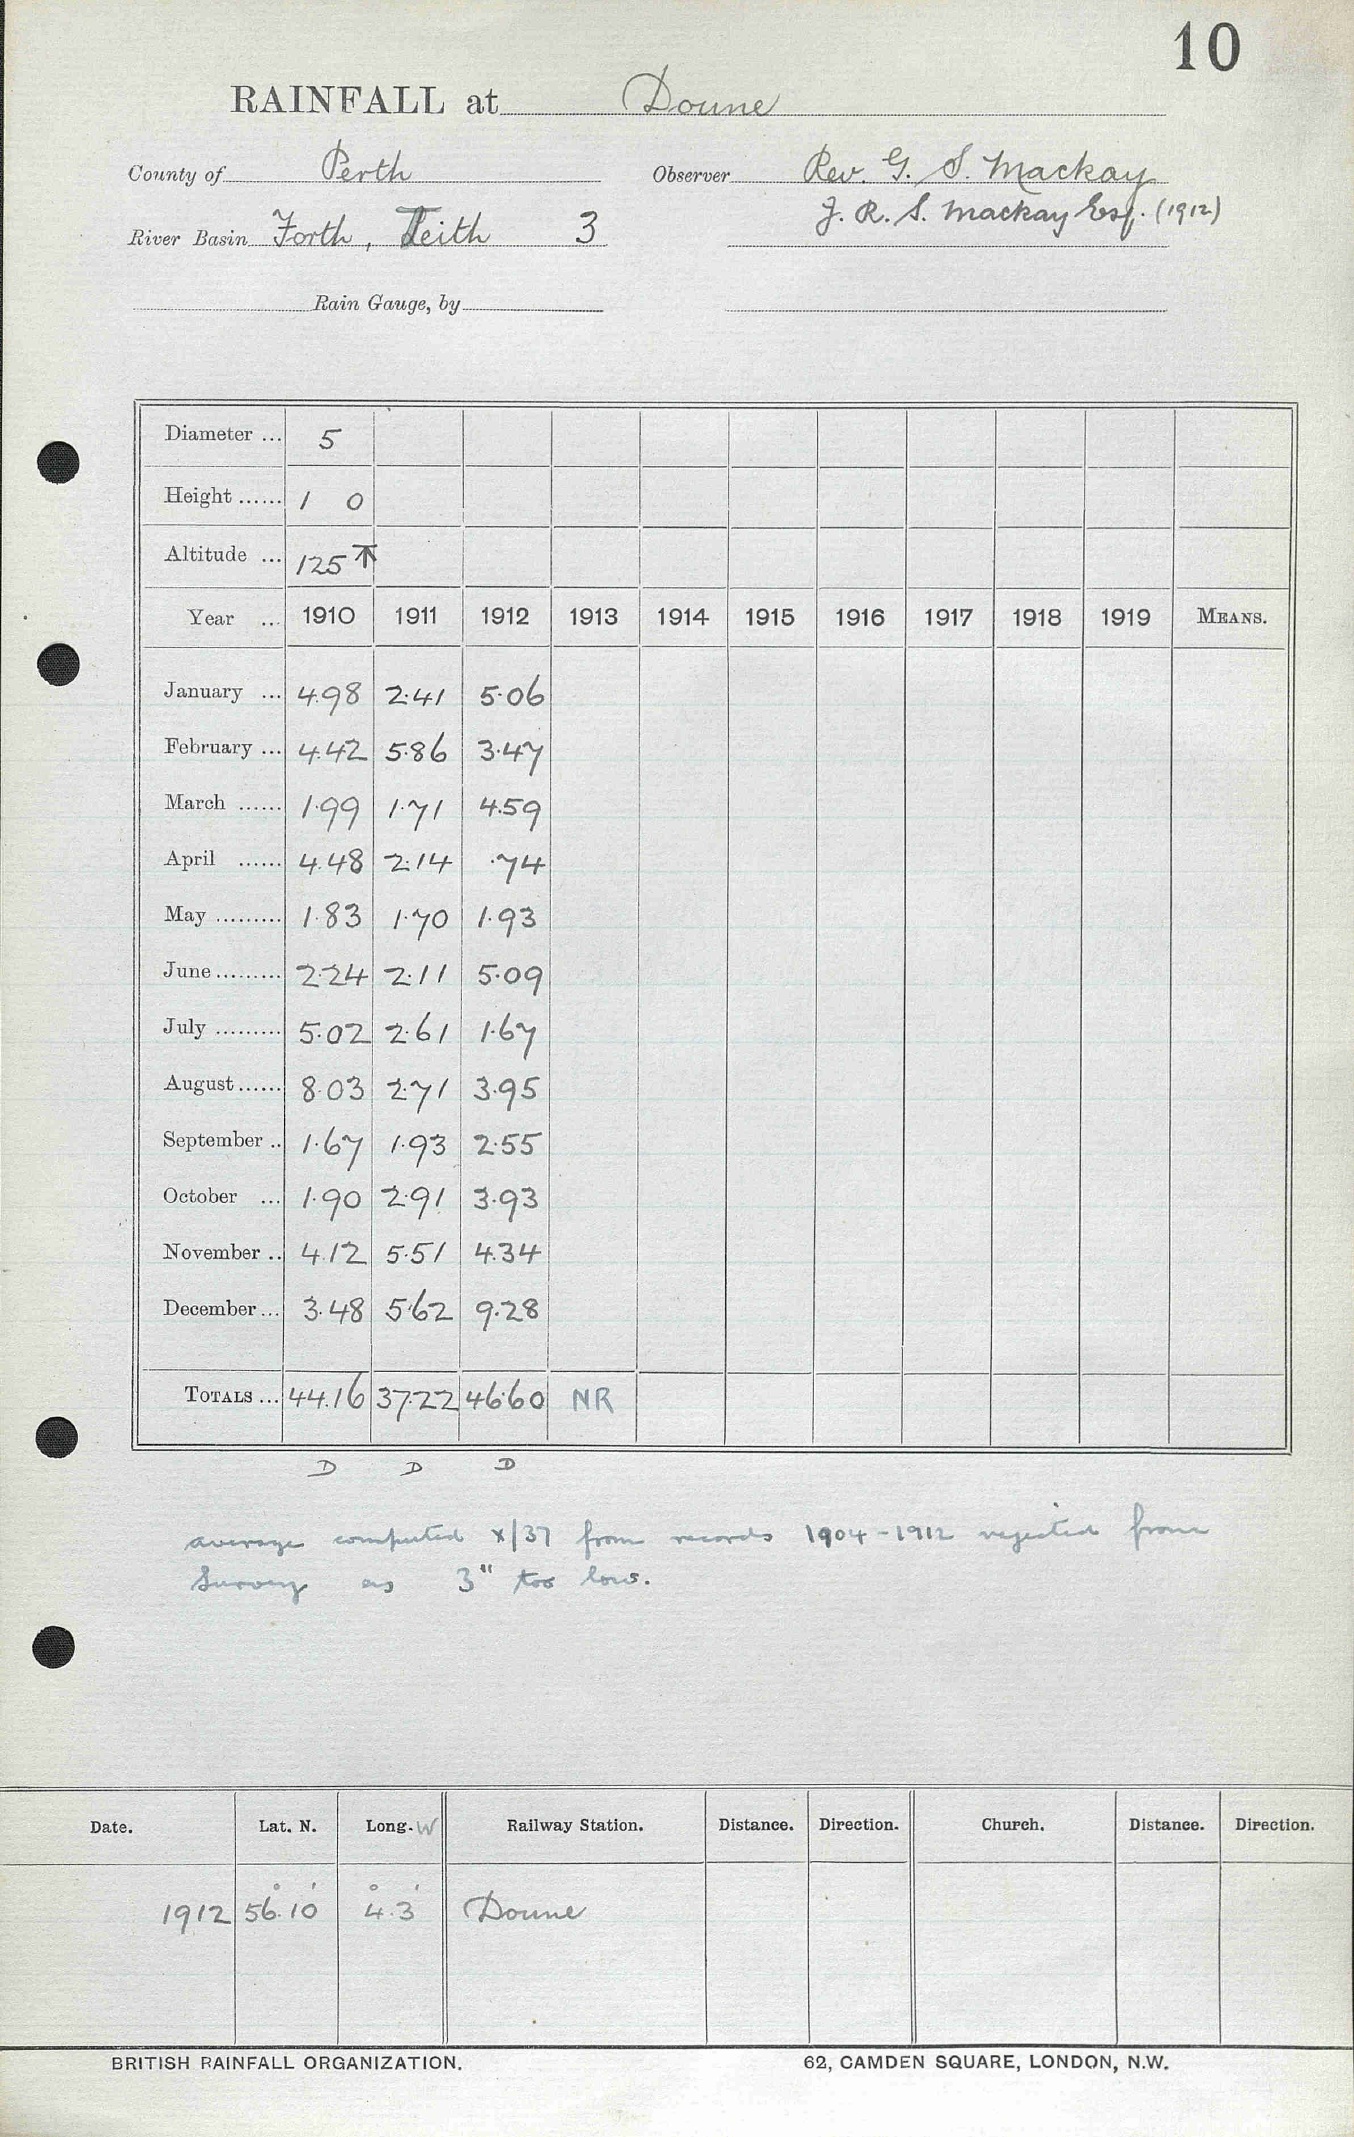 10
RAINFALL at Doune
County of Perth Observer Rev. G. S. Mackay
J. R. S. Mackay Esq. (1912)
River Basin Forth, Teith 3
Rain Gauge, by
Diameter ... 5
Height ...... 1 0
Altitude ... 125 T
Year ... 1910 1911 1912 1913 1914 1915 1916 1917 1918 1919 MEANS.
January ... 4.98 2.41 5.06
February ... 4.42 5.86 3.47
March ...... 1.99 1.71 4.59
April ...... 4.48 2.14 .74
May ......... 1.83 1.70 1.93
June ......... 2.24 2.11 5.09
July ......... 5.02 2.61 1.67
August ...... 8.03 2.71 3.95
September .. 1.67 1.93 2.55
October ... 1.90 2.91 3.93
November .. 4.12 5.51 4.34
December ... 3.48 5.62 9.28
TOTALS ... 44.16 37.22 46.60 NR
D D D
average computed x/37 from records 1904-1912 rejected from
Survey as 3" too low.
Date. Lat. N. Long. W Railway Station. Distance. Direction. Church. Distance. Direction.
1912 56° 10' 4° 3' Doune
BRITISH RAINFALL ORGANIZATION. 62, CAMDEN SQUARE, LONDON, N.W.